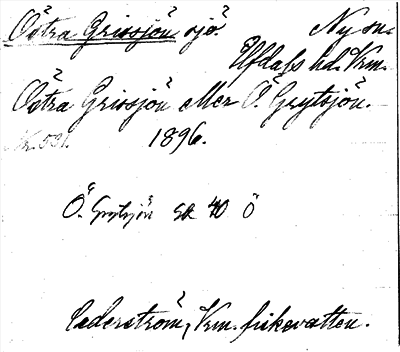 Östra Grissjön sjö Ny sn.
Elfdals hd. Vrm.
Östra Grissjön eller Ö. Grytsjön.
Nr. 531. 1896.
Ö. Grytsjön GK 40 Ö
Cederström, Vrm. fiskevatten.